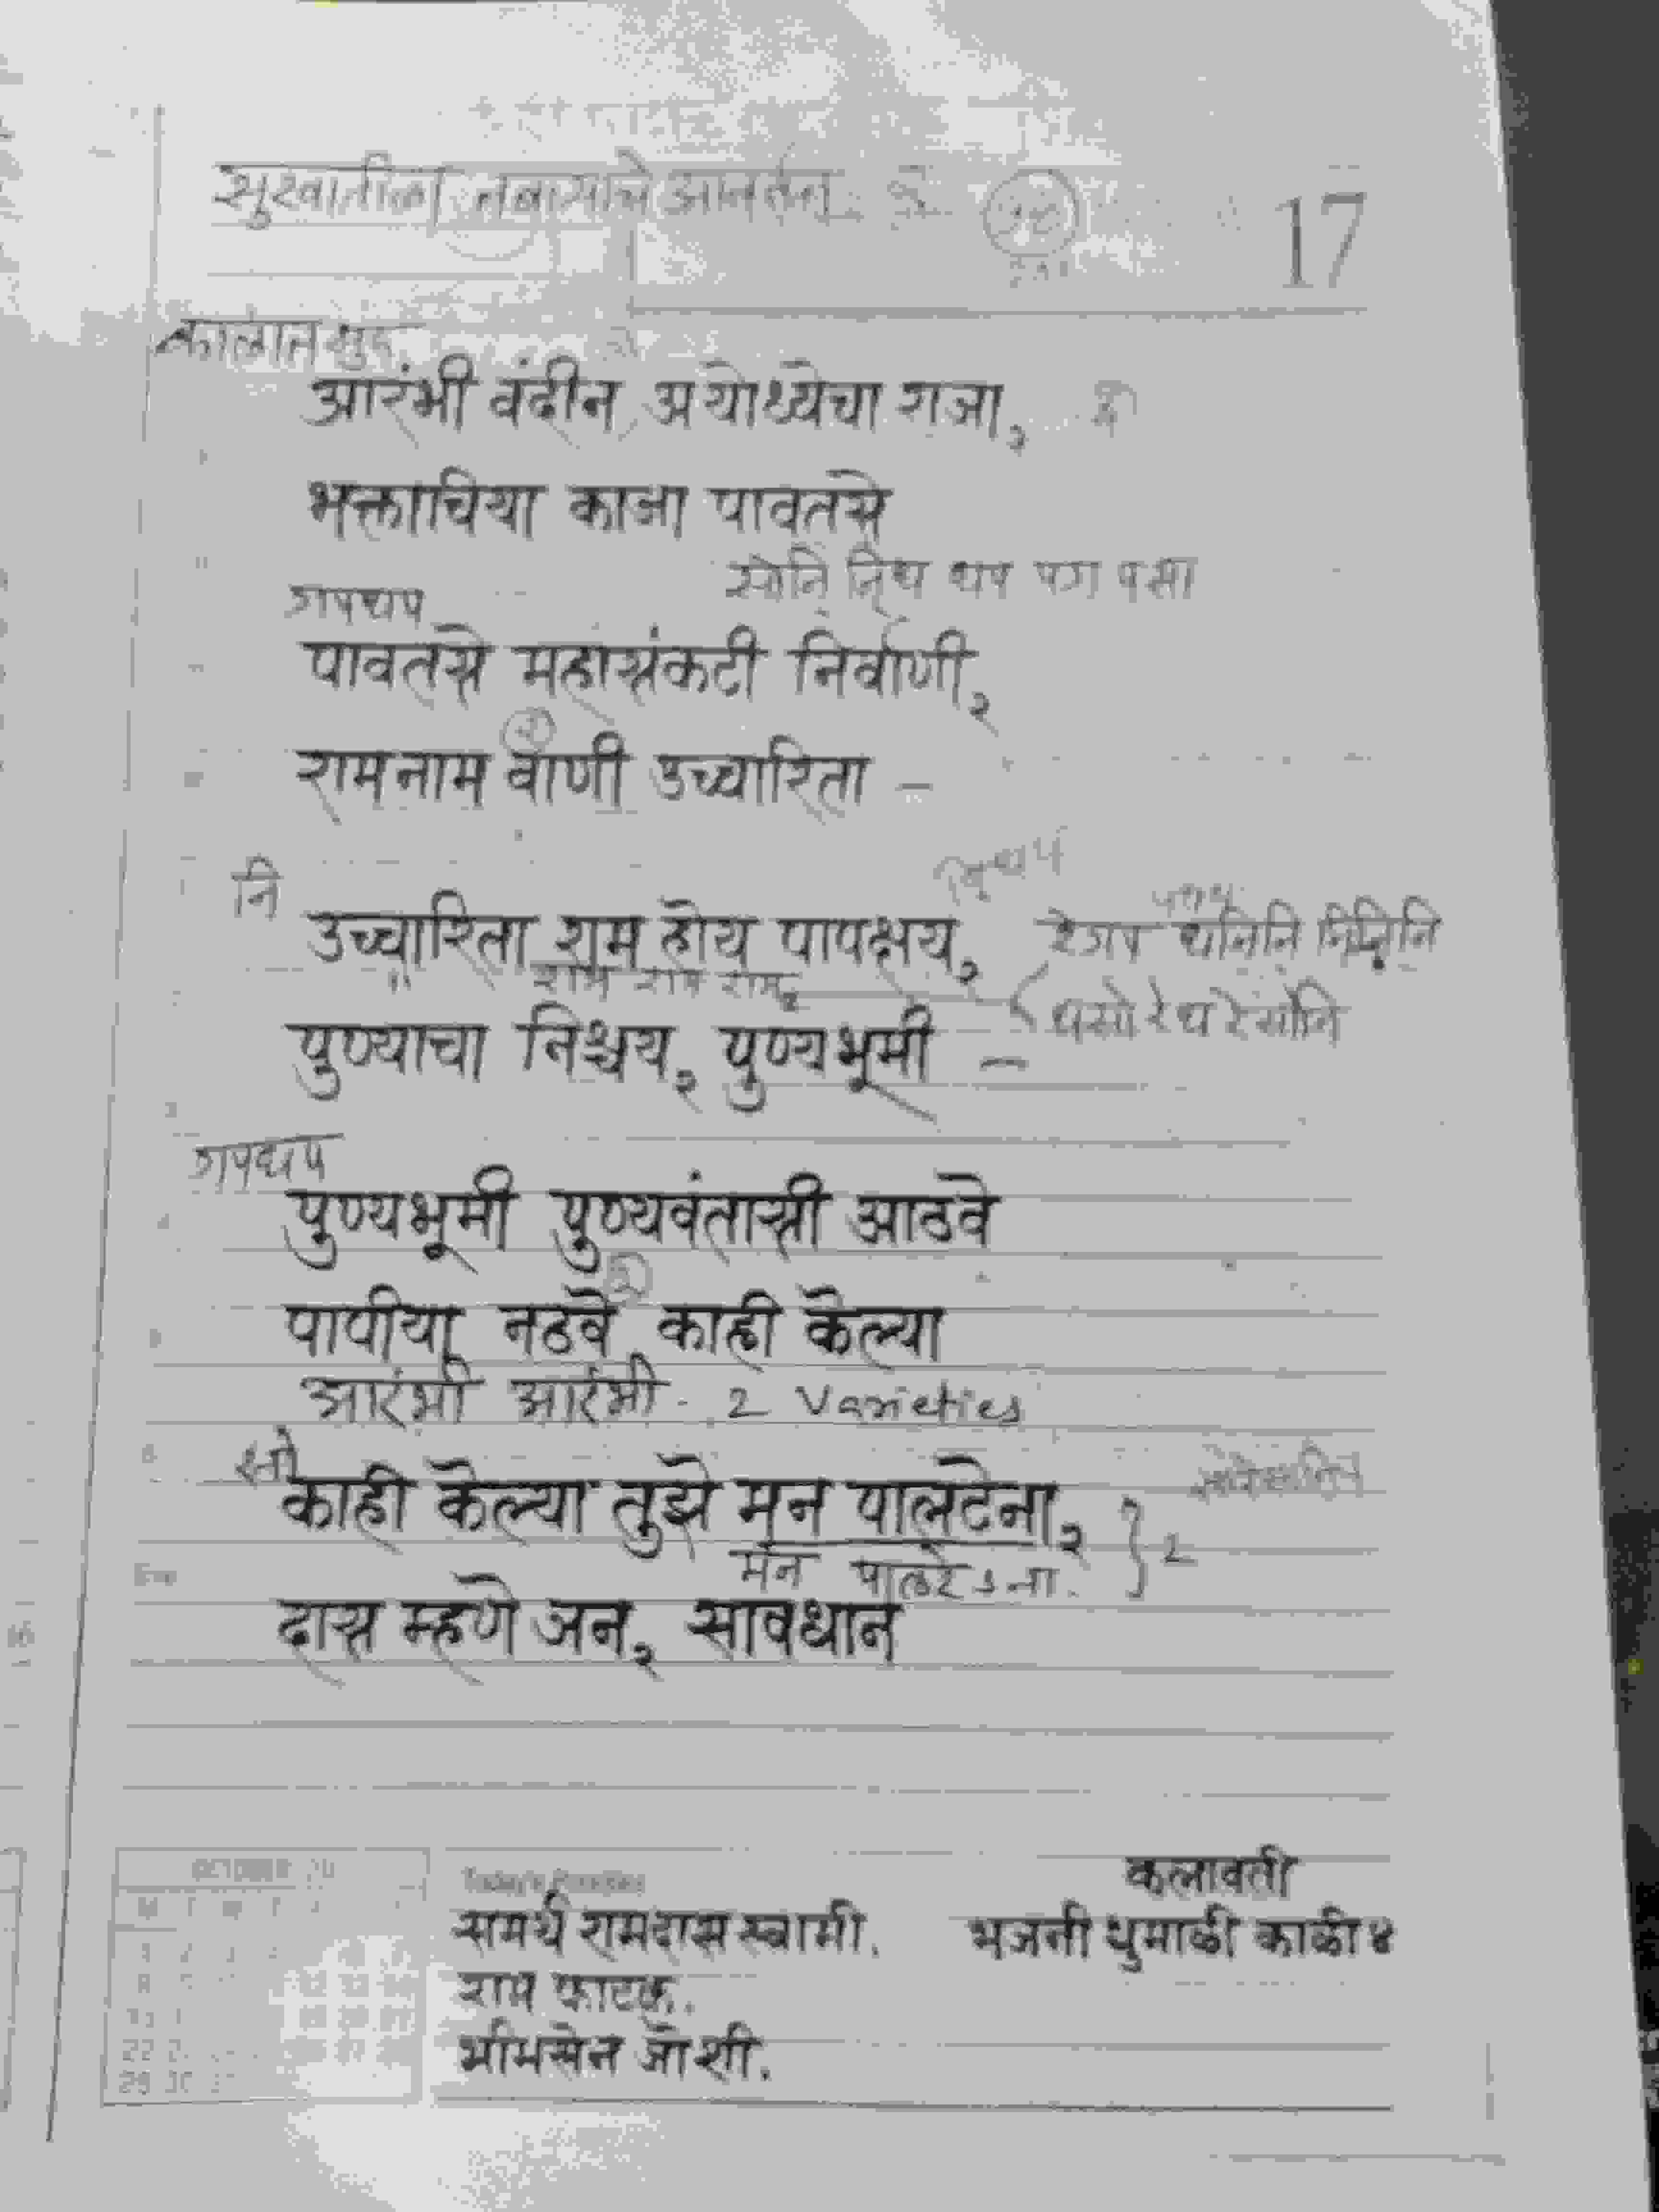 17
आरंभी वंदीन अयोध्येचा राजा, २
भक्ताचिया काजा पावतसे
सोनि निध धप पग पसा
गपधप
पावतसे महासंकटी निर्वाणी, २
रामनाम वाणी उच्चारिता –
नि
उच्चारिता राम होय पापक्षय, २ रेगप धनिनि
राम राम राम
पुण्याचा निश्चय, २ पुण्यभूमी –
गपधप
पुण्यभूमी पुण्यवंतासी आठवे
पापीया नठवे काही केल्या
आरंभी आरंभी - 2 Varieties
सो
काही केल्या तुझे मन पालटेना, २ } 2
मन पालटे ऽ ना.
दास म्हणे जन, २ सावधान
OCTOBER
Today's Priorities
कलावती
समर्थ रामदास स्वामी. भजनी धुमाळी काळी ४
राम फाटक.
भीमसेन जोशी.